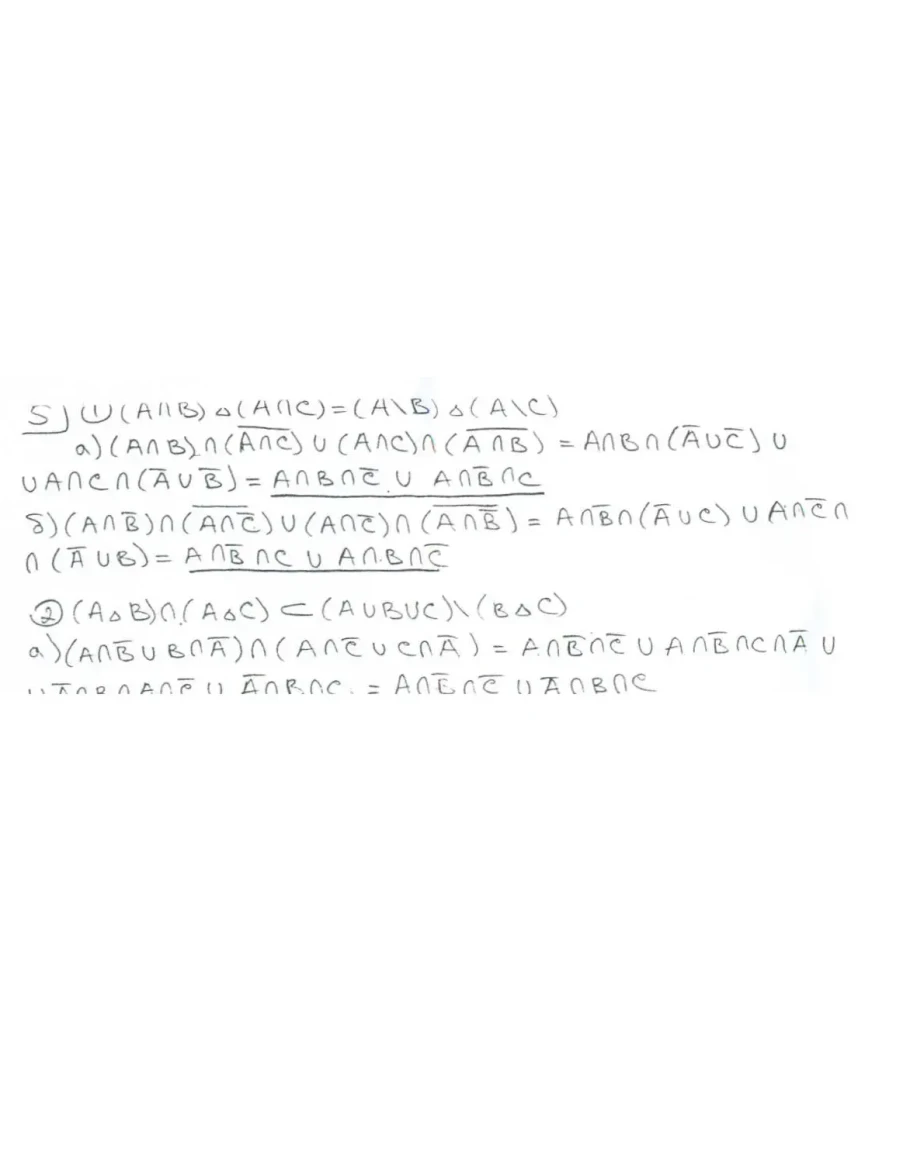 5) ① (A∩B) △ (A∩C) = (A\B) △ (A\C)
a) (A∩B)∩(A̅∩̅C̅) ∪ (A∩C)∩(A̅∩̅B̅) = A∩B∩(A̅∪C̅) ∪
∪ A∩C∩(A̅∪B̅) = A∩B∩C̅ ∪ A∩B̅∩C
б) (A∩B̅)∩(A̅∩̅C̿) ∪ (A∩C̅)∩(A̅∩̅B̿) = A∩B̅∩(A̅∪C) ∪ A∩C̅∩
∩(A̅∪B) = A∩B̅∩C ∪ A∩B∩C̅
② (A△B)∩(A△C) ⊂ (A∪B∪C)\(B△C)
a) (A∩B̅ ∪ B∩A̅)∩(A∩C̅ ∪ C∩A̅) = A∩B̅∩C̅ ∪ A∩B̅∩C∩A̅ ∪
∪ A̅∩B∩A∩C̅ ∪ A̅∩B∩C = A∩B̅∩C̅ ∪ A̅∩B∩C